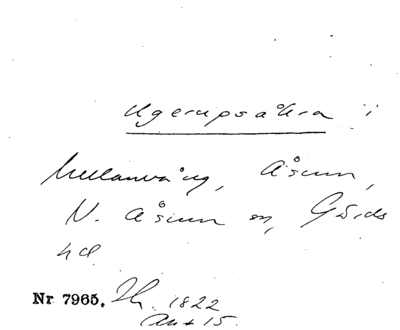 Ugerupsåkra i
Mellanvång, Åsum,
N. Åsum sn, Gärds
hd
Nr 7965. Lh. 1822
Akt 15.